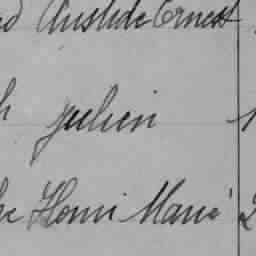 Aristide Ernest
Julien
Henri Marie